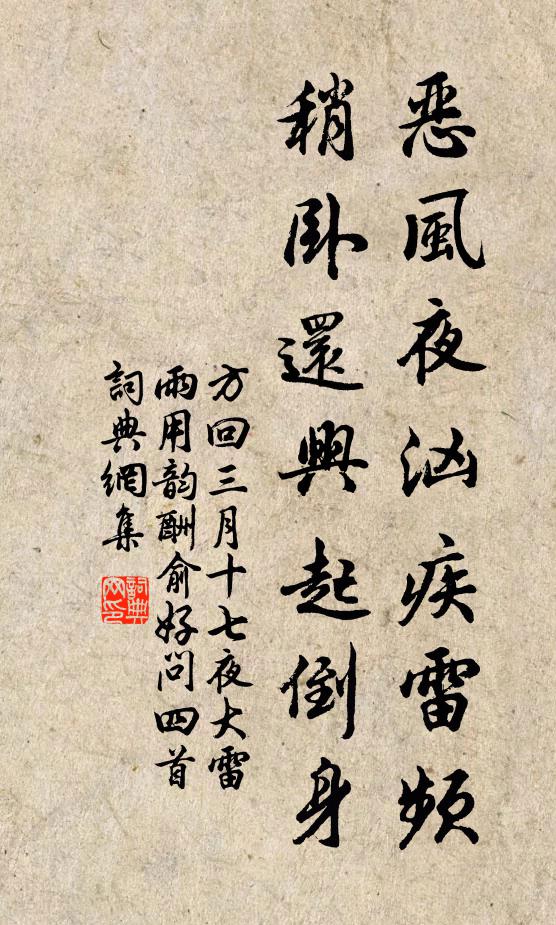 惡風夜汹疾雷頻
稍臥還興起倒身
方回三月十七夜大雷
雨用韵酬俞好問四首
詞典網集
詞典網印